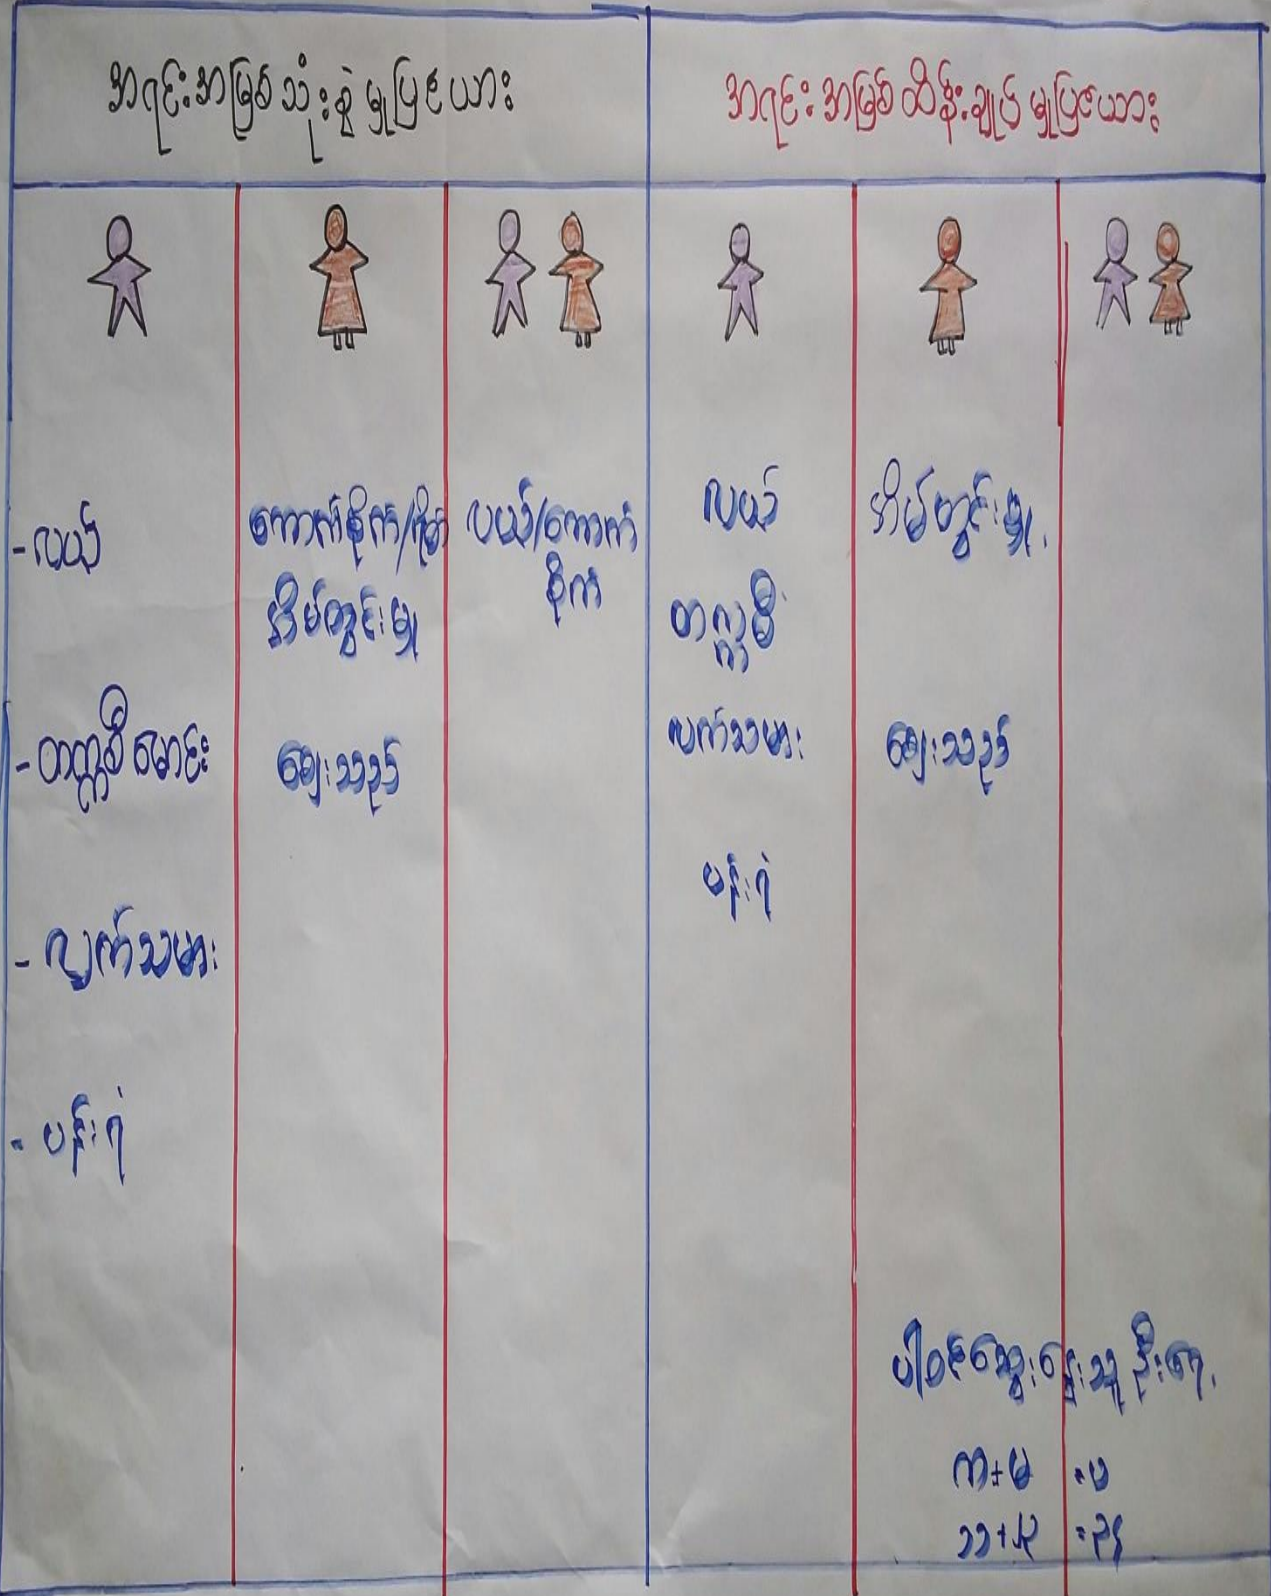 အရင်းအမြစ်သုံးစွဲမှုပြဇယား
အရင်းအမြစ်ထိန်းချုပ်မှုပြဇယား
-လယ်
-တက္ကစီမောင်း
-လျှက်သမား
-ပန်းရံ
ကောက်စိုက်/
အိမ်တွင်းမှု
ဈေးသည်
လယ်/ကောက်
စိုက်
လယ်
တက္ကစီ
လက်သမား
ပန်းရံ
အိမ်တွင်းမှု
ဈေးသည်
ပါဝင်ဆွေးနွေးသူဦးရေ